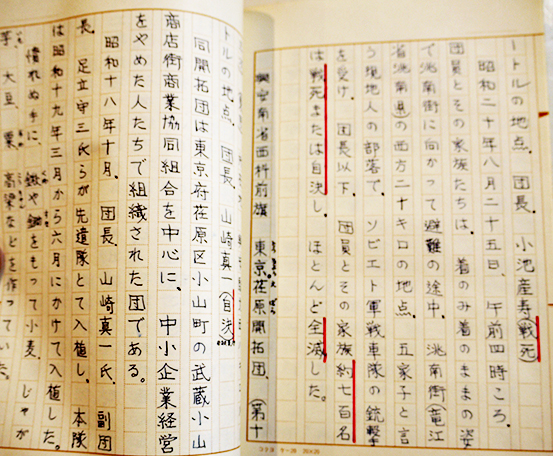 ートルの地点。団長、小池産寿(戦死)
昭和二十年八月二十五日、午前四時ごろ、
団員とその家族たちは、着のみ着のままの姿
で洮南街に向かって避難の途中、洮南街(竜江
省洮南県)の西方二十キロの地点、五家子と言
う現地人の部落で、ソビエト軍戦車隊の銃撃
を受け、団長以下、団員とその家族約七百名
は戦死または自決し、ほとんど全滅した。
興安南省西科前旗 東京荏原開拓団。(第十
トルの地点。団長、山崎真一(自決)
同開拓団は東京府荏原区小山町の武蔵小山
商店街商業協同組合を中心に、中小企業経営
をやめた人たちで組織された団である。
昭和十八年十月、団長、山崎真一氏、副団
長、足立守三氏らが先遣隊として入植し、本隊
は昭和十九年三月から六月にかけて入植した。
慣れぬ手に、鍬や鎌をもって小麦、じゃが
芋、大豆、粟、高粱などを作っていた。
コクヨ 20×20